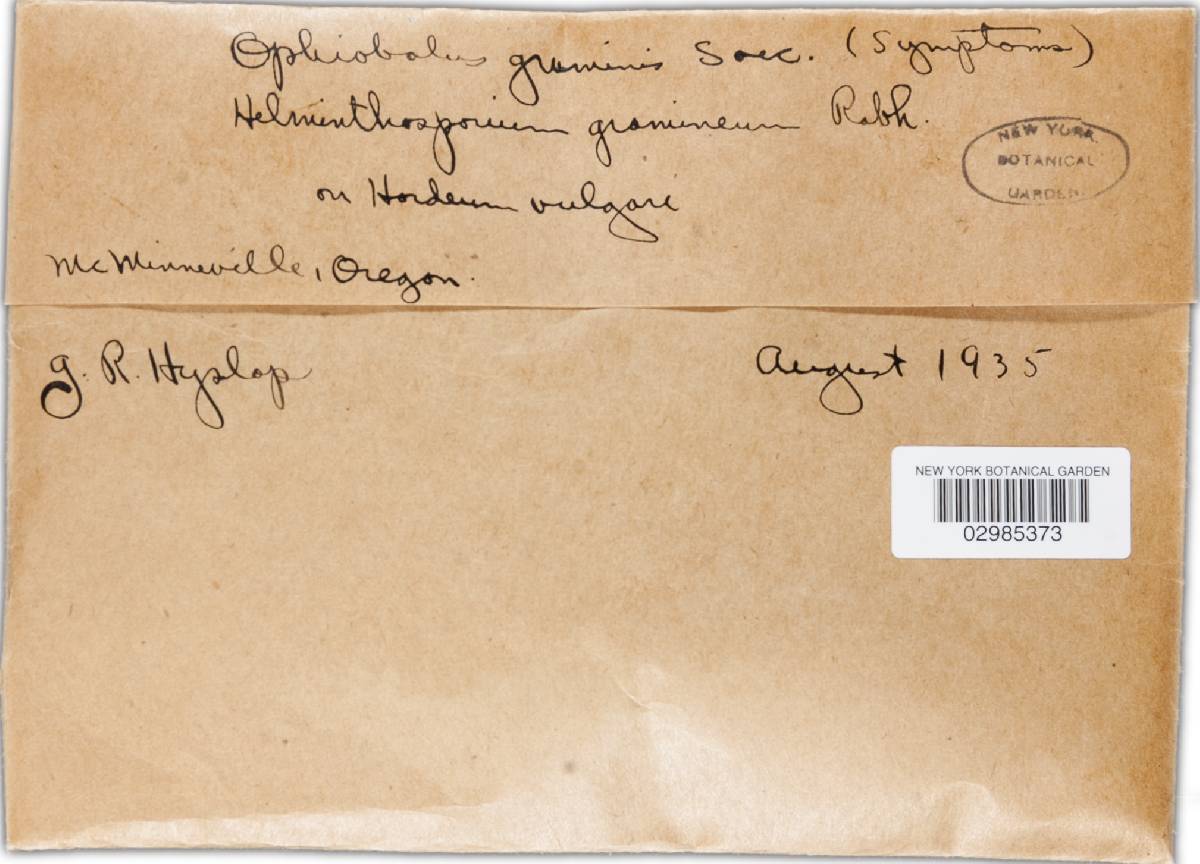 Ophiobolus graminis Sacc. (Symptoms)
Helminthosporium gramineum Rabh.
NEW YORK
BOTANICAL
GARDEN
on Hordeum vulgare
McMinneville, Oregon.
G. R. Hyslop
August 1935
NEW YORK BOTANICAL GARDEN
02985373